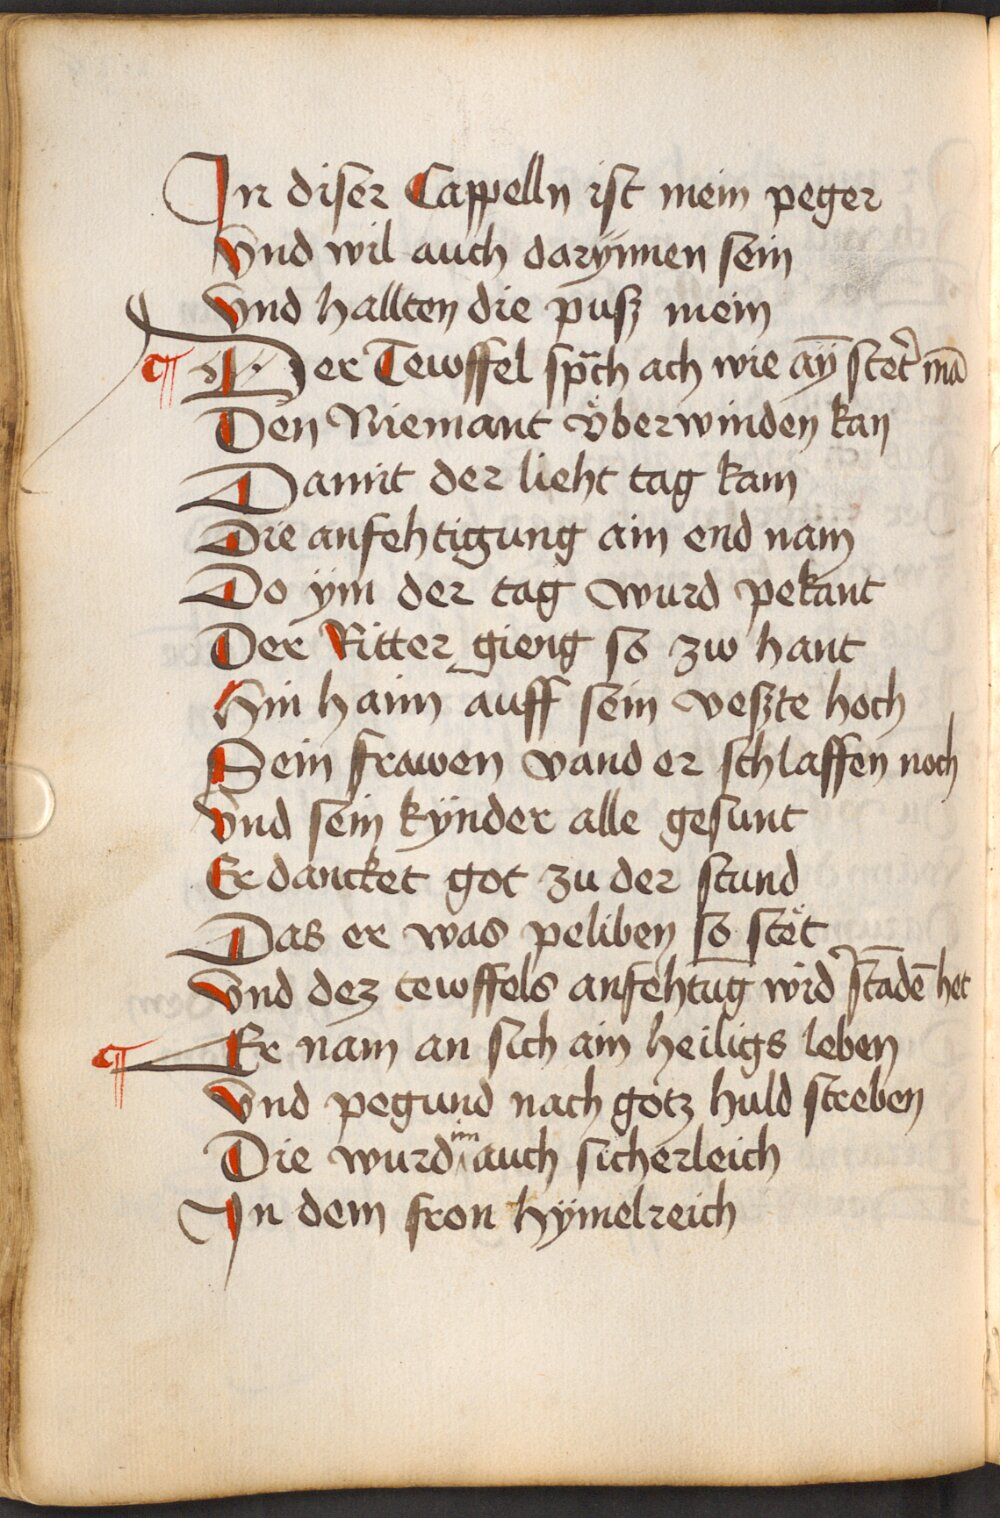 In diser Cappelln ist mein peger
Vnd wil auch darÿnnen sein
Vnd hallten die pusz mein
¶ Der Tewffel sp̄ch ach wie aÿ̄ stet̾ mā
Den Niemant v̈berwinden kan
Damit der lieht tag kam
Die anfehtigung ain end nam
Do ÿm der tag wurd pekant
Der Ritter gieng so zw hant
Hin haim auff sein veszte hoch
Sein frawen vand er schlaffen noch
Vnd sein kÿnder alle gesunt
Er dancket got zu der stund
Das er was peliben so stët
Vnd dez tewffels anfehtūg wid̾ stādē het
¶ Er nam an sich ain heiligs leben
Vnd pegund nach gotz huld streben
Die wurd im auch sicherleich
In dem fron hÿmelreich